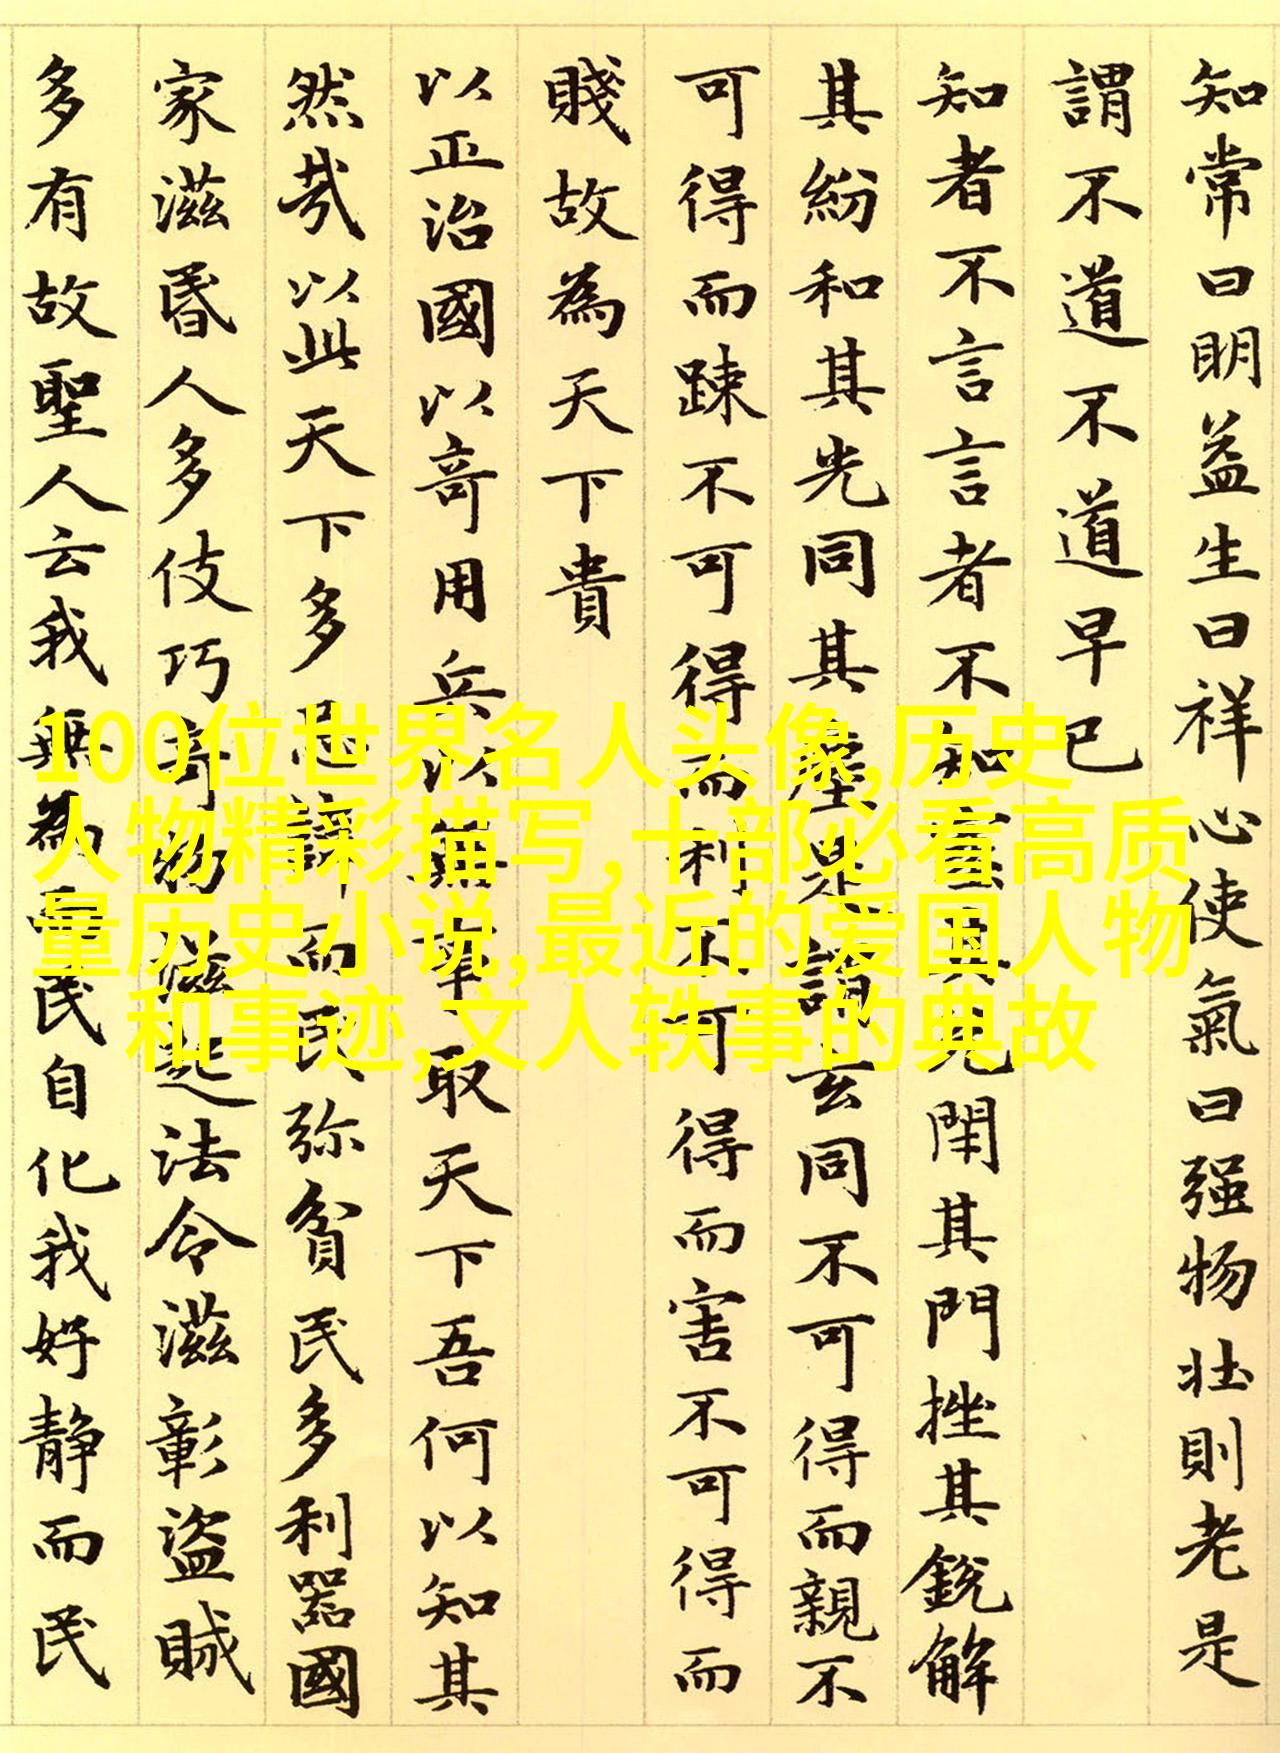 知常曰明益生曰祥心使氣曰强物壮則老是
謂不道不道早已
知者不言言者不知塞其兑閇其門挫其銳解
其紛和其光同其塵是謂玄同不可得而親不
可得而踈不可得而利不可得而害不可得而
賤故為天下貴
以正治國以奇用兵以無事取天下吾何以知其
然哉以此天下多忌諱而民弥貧民多利器國
家滋昬人多伎巧奇物滋起法令滋彰盜賊
多有故聖人云我無為而民自化我好静而民
100位世界名人头像,历史
人物精彩描写,十部必看高质
量历史小说,最近的爱国人物
和事迹,文人轶事的典故